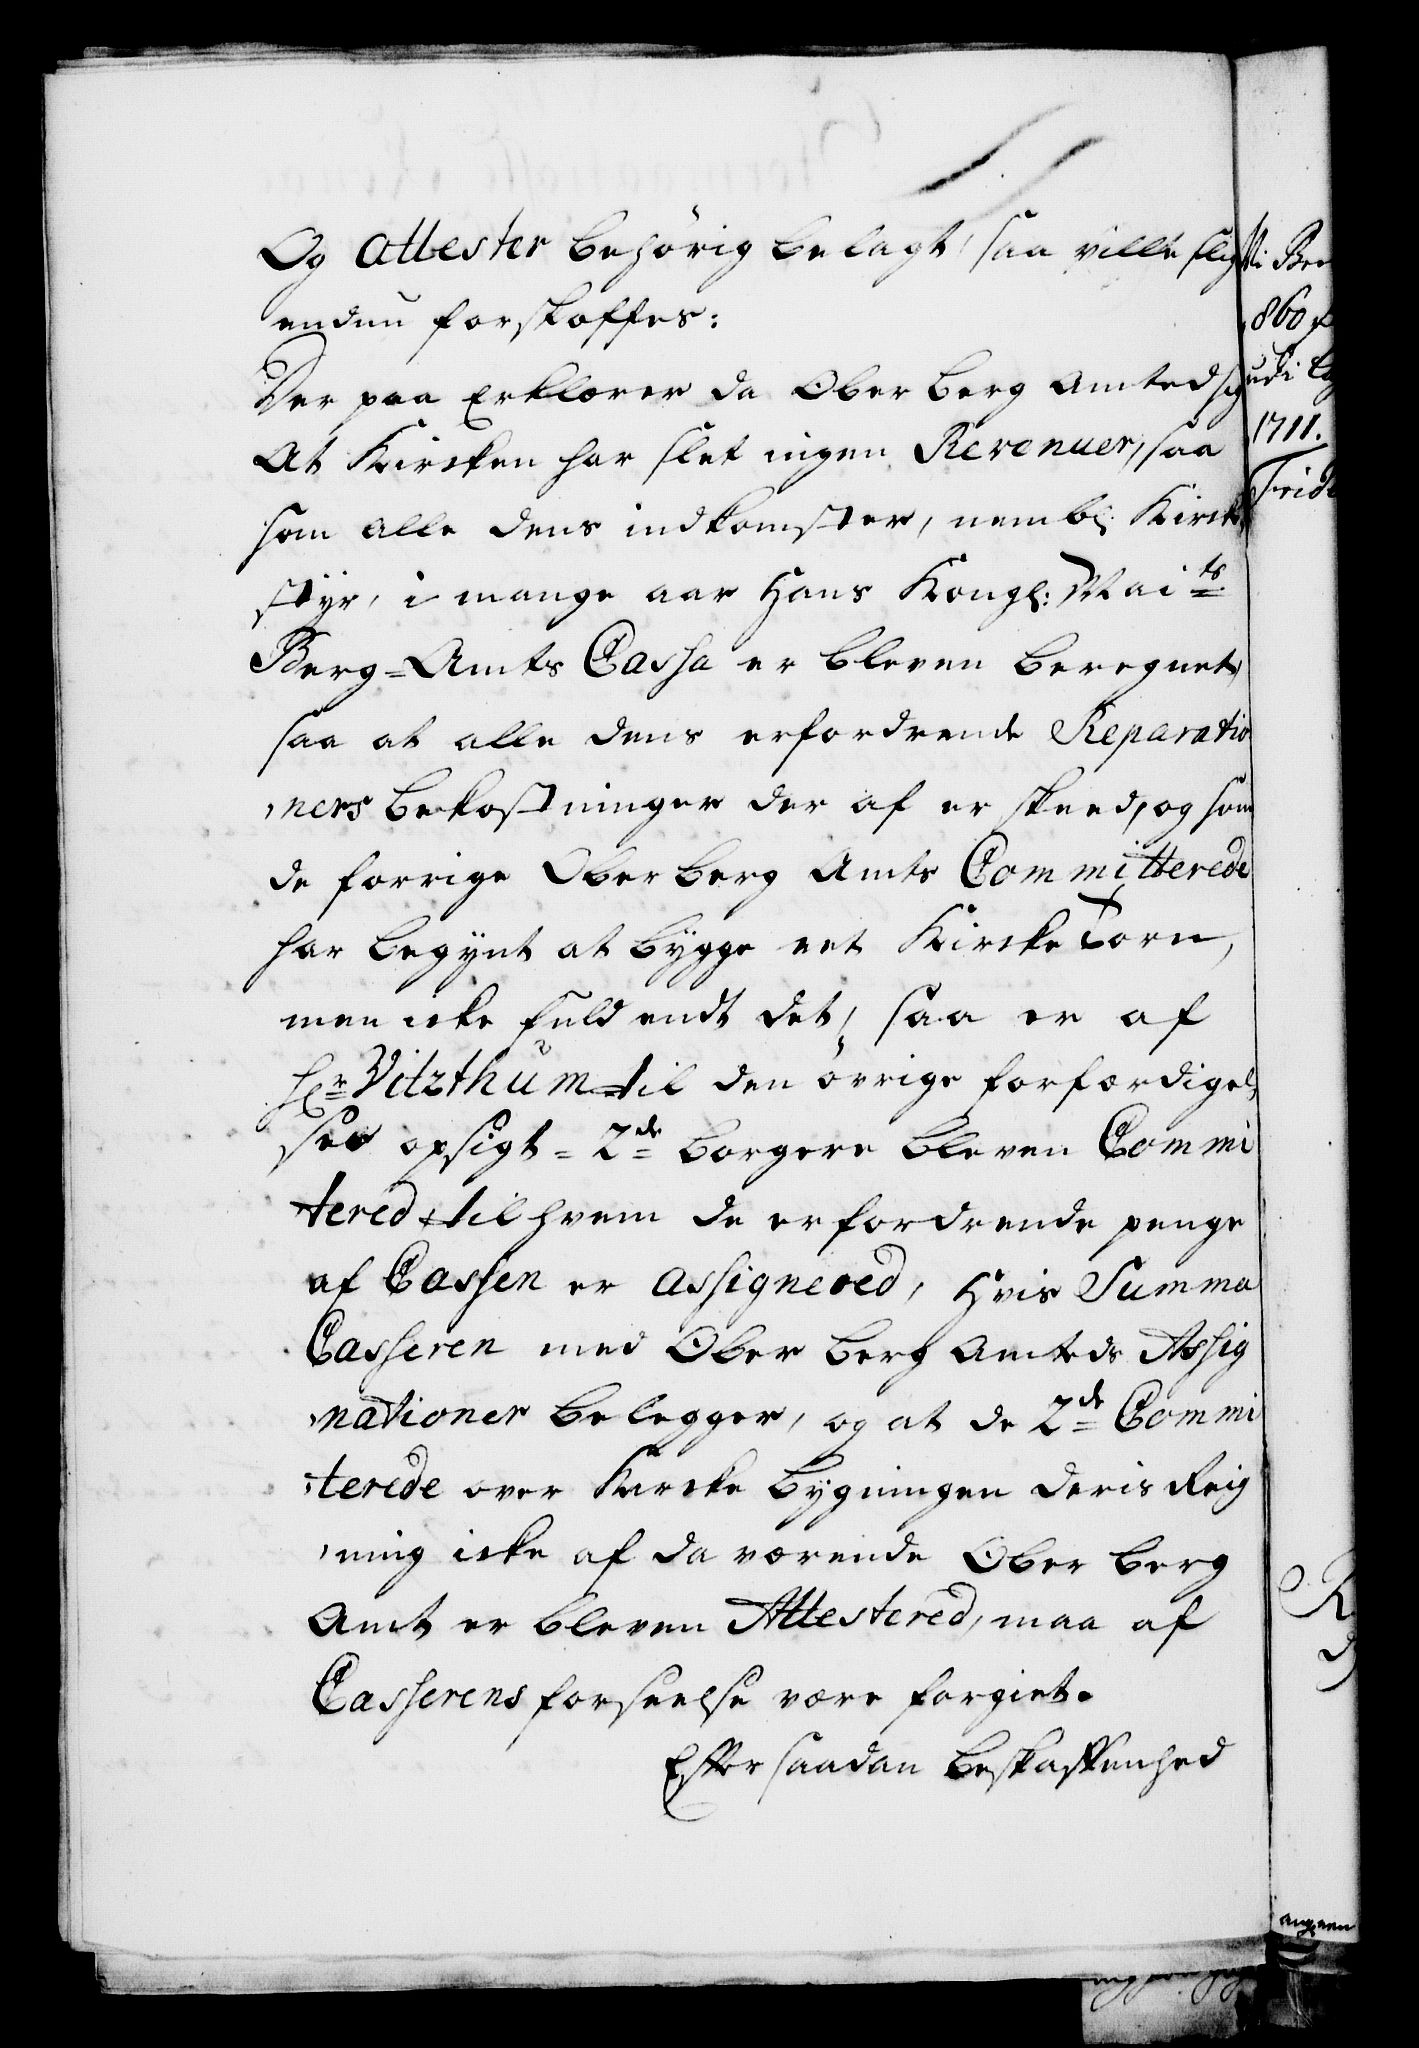 Og attester behörig belagt, saa ville slig
endnu forskaffes:
Der paa Erklærer da Ober Berg Amted sig
At Kircken har slet ingen Revenuer, saa
som alle dens indkomster, nembl: Kircke
styr, i mange aar Hans Kongl: Mai^ts
Berg-Amts Cassa er bleven beregnet,
saa at alle dens erfordrende Reparatio
ners bekostninger der af er skeed, og som
de forrige Ober Berg Amts Committerede
har begynt at bygge eet Kircke Torn,
men icke fuldendt det, saa er af
Hr Vitzthum til den övrige forfærdigel,
ses opsigt - 2de borgere bleven Commi
tered, til hvem de erfordrende penge
af Cassen er assignered, Hvis Summa
Casseren med Ober Berg Amteds Assig
nationer belegger, og at de 2de Commi
terede over Kircke bygningen deris Reig
ning icke af da værende Ober Berg
Amt er bleven Attestered, maa af
Casserens forseelse være forgiet.
Efter saadan beskaffenhed
860
1711.